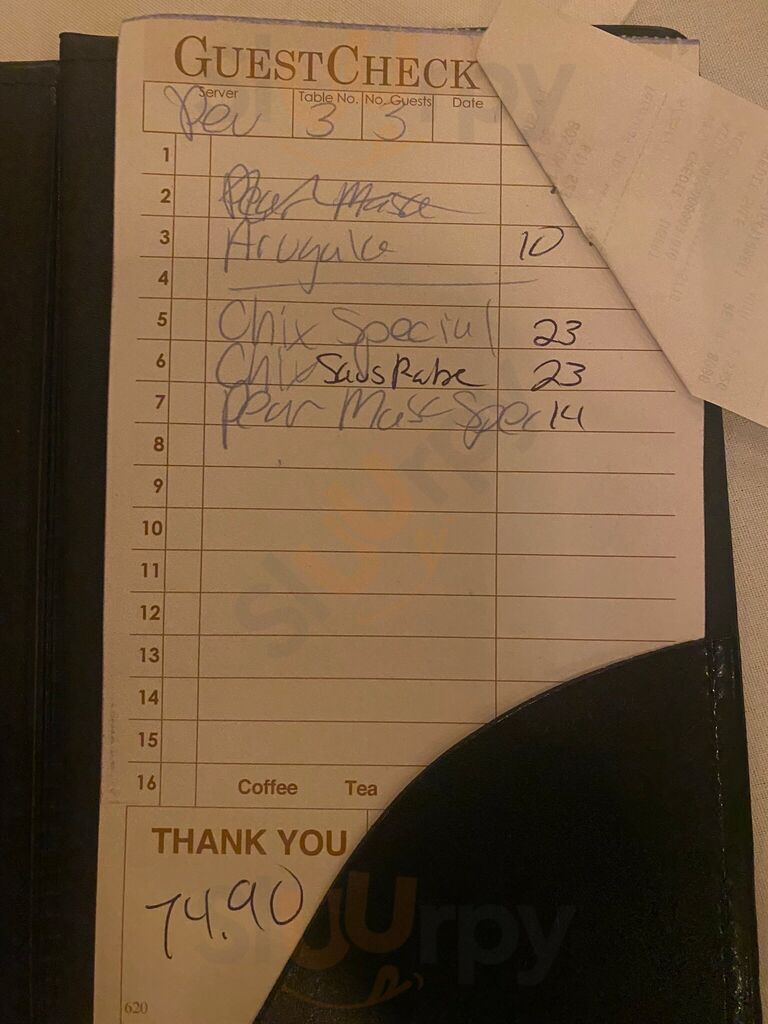 GUEST CHECK
Server Table No. No. Guests Date
3 3
1
2
3 Arugula 10
4
5 Chix Special 23
6 Chix Saus Rabe 23
7 Pear Masc Spec 14
8
9
10
11
12
13
14
15
16 Coffee Tea
THANK YOU
74.90
620
slUUrpy
slUUrpy